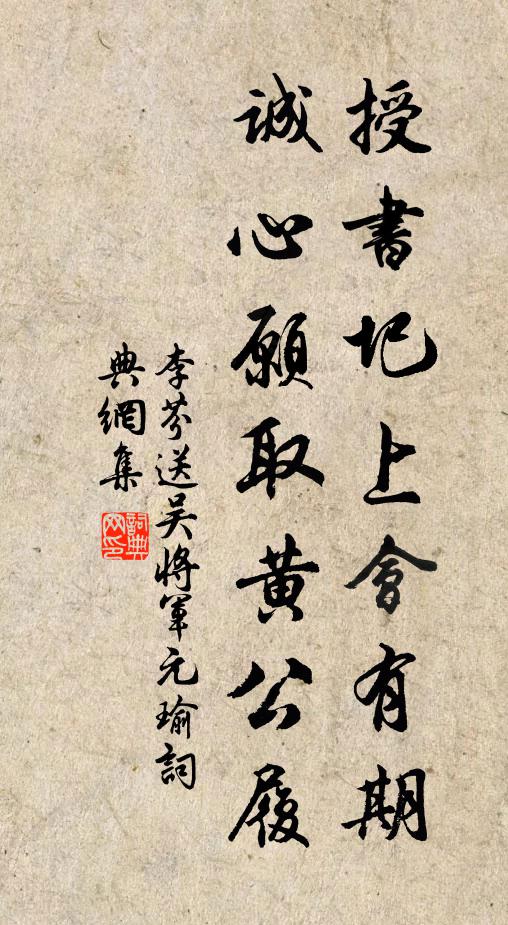 授書圯上會有期
誠心願取黃公履
李芬送吳將軍元瑜詞
典網集
詞典網印